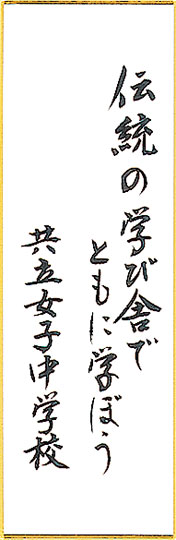 伝統の学び舎で
ともに学ぼう
共立女子中学校